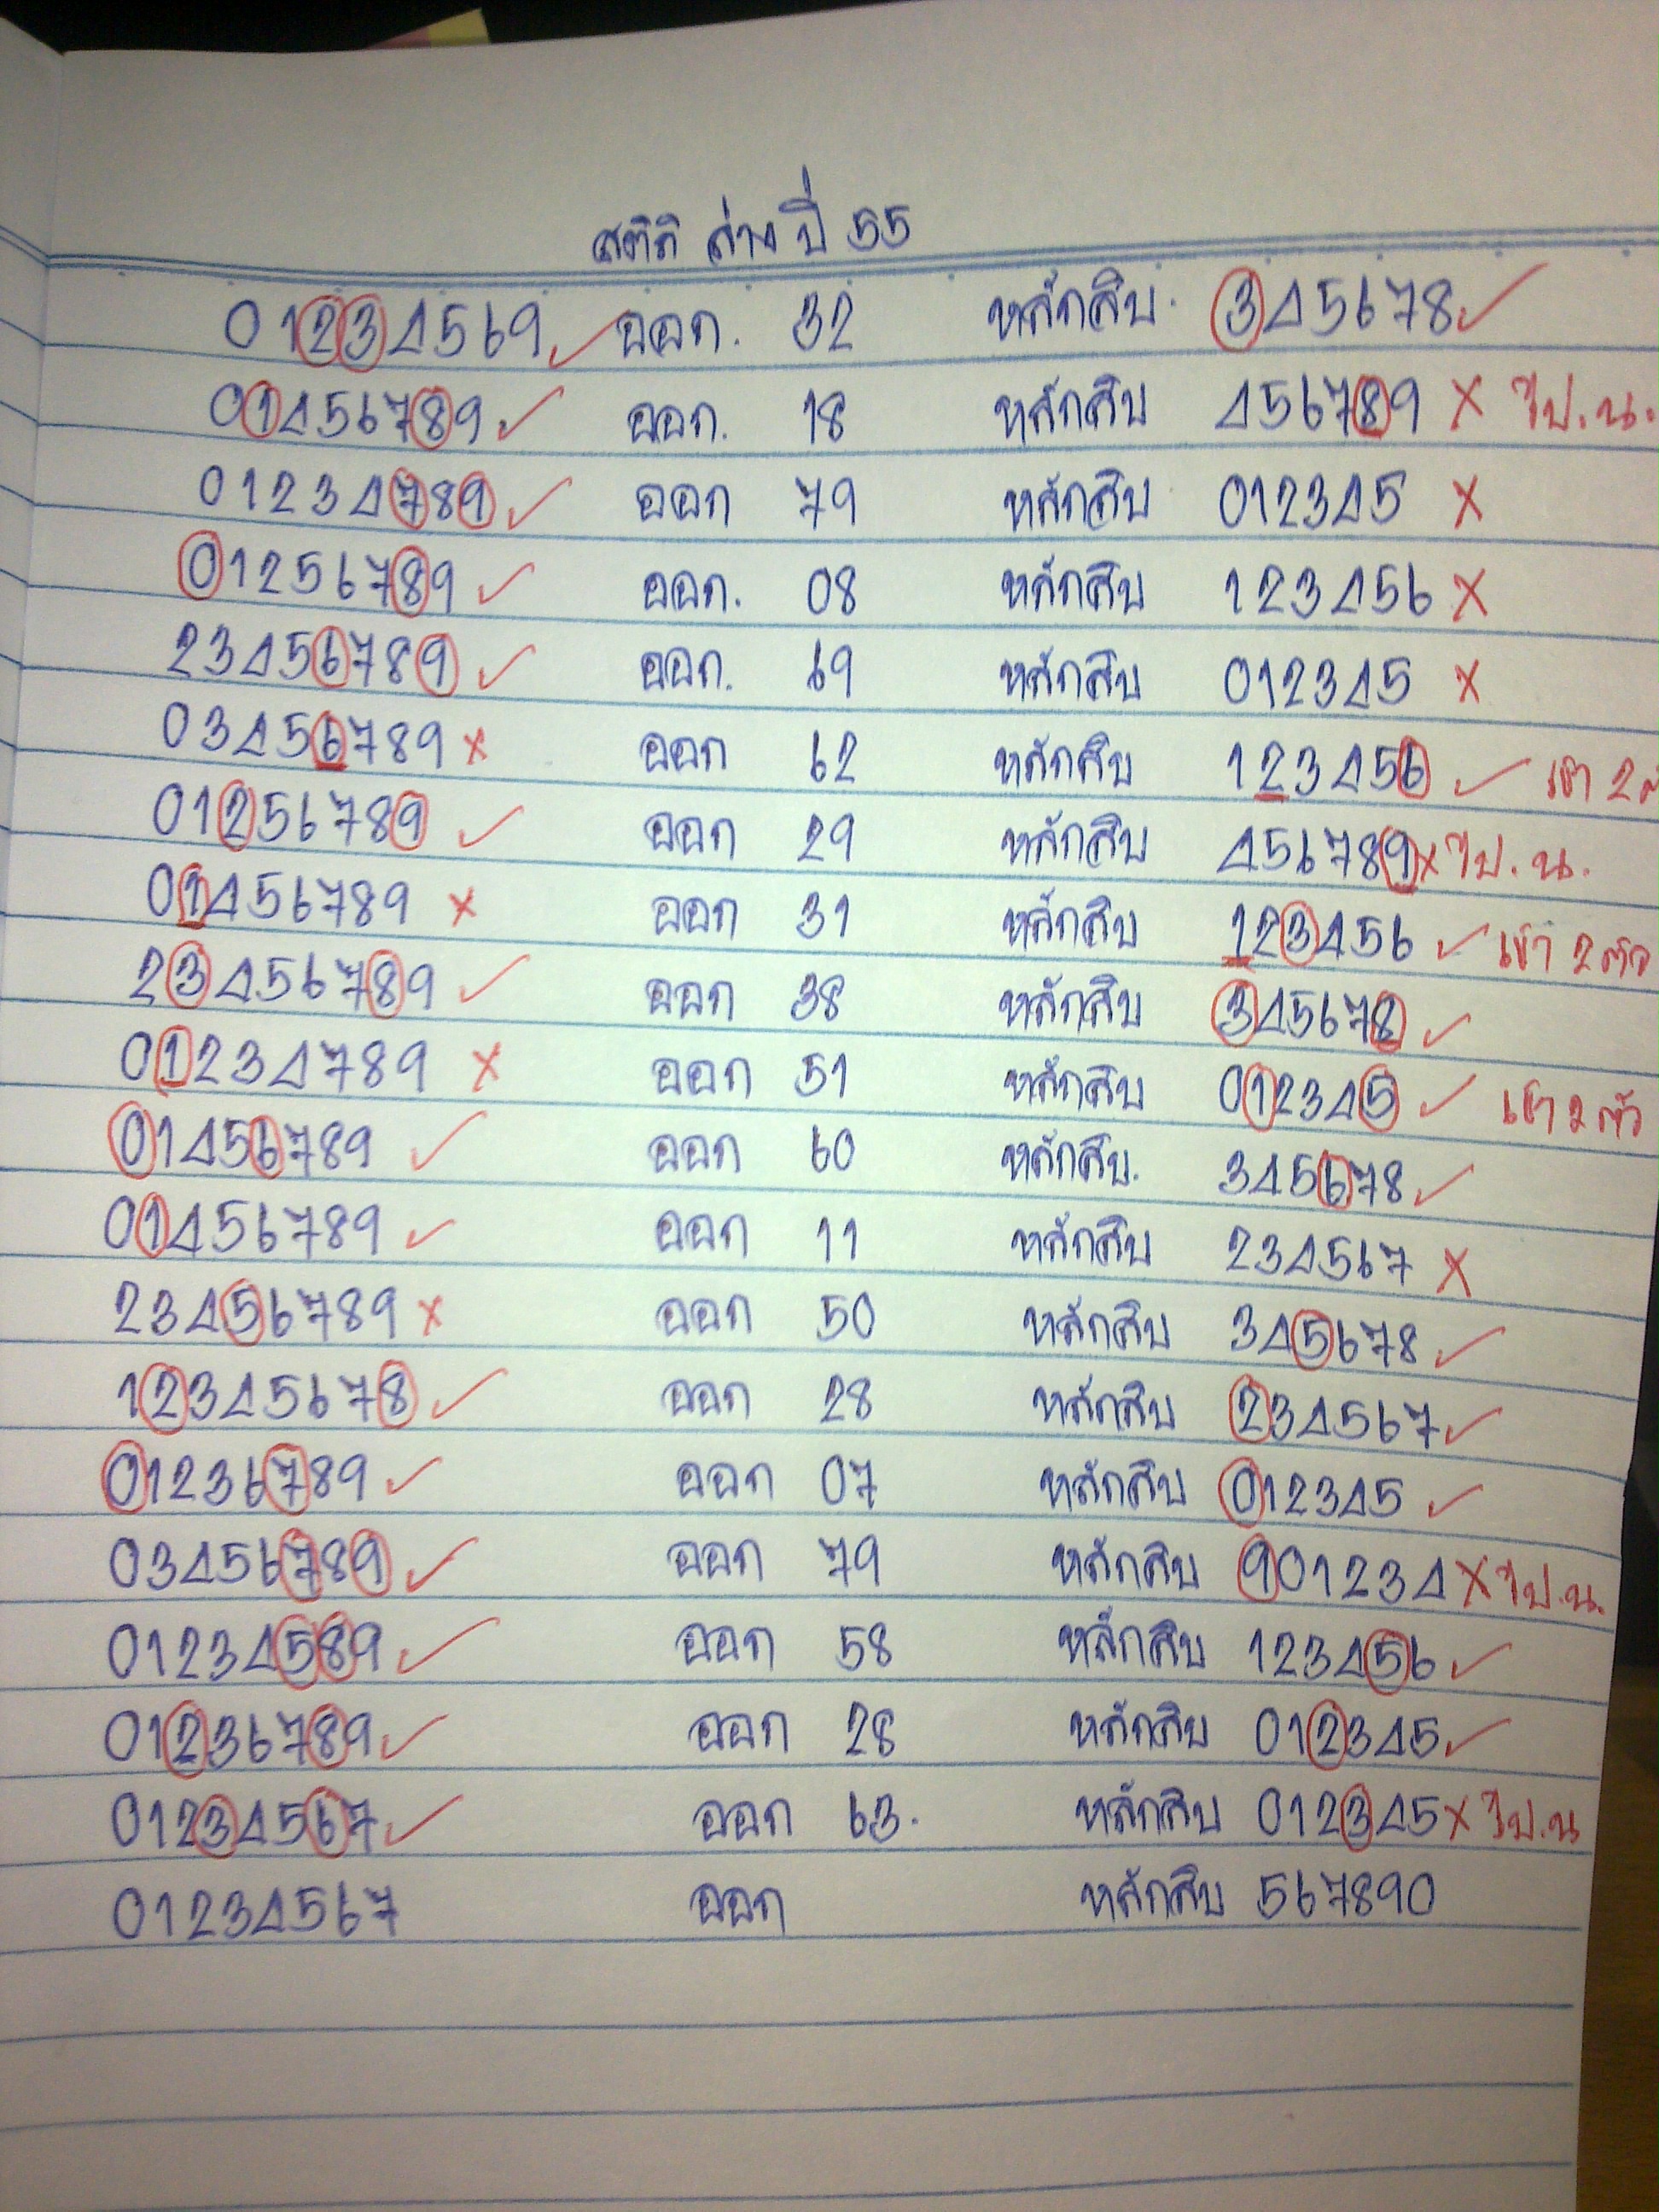 สถิติ ล่าง ปี 55
01234569 ✓ ออก. 32 หลักสิบ. 345678 ✓
01456789 ✓ ออก. 18 หลักสิบ 456789 × ไป.น.
01234789 ✓ ออก 79 หลักสิบ 012345 ×
01256789 ✓ ออก. 08 หลักสิบ 123456 ×
23456789 ✓ ออก. 69 หลักสิบ 012345 ×
03456789 × ออก 62 หลักสิบ 123456 ✓ เข้า 2
01256789 ✓ ออก 29 หลักสิบ 456789 × ไป.น.
01456789 × ออก 31 หลักสิบ 123456 ✓ เข้า 2 ตัว
23456789 ✓ ออก 38 หลักสิบ 345678 ✓
01234789 × ออก 51 หลักสิบ 012345 ✓ เข้า 2 ตัว
01456789 ✓ ออก 60 หลักสิบ. 345678 ✓
01456789 ✓ ออก 11 หลักสิบ 234567 ×
23456789 × ออก 50 หลักสิบ 345678 ✓
12345678 ✓ ออก 28 หลักสิบ 234567 ✓
01236789 ✓ ออก 07 หลักสิบ 012345 ✓
03456789 ✓ ออก 79 หลักสิบ 901234 × ไป.น.
01234589 ✓ ออก 58 หลักสิบ 123456 ✓
01236789 ✓ ออก 28 หลักสิบ 012345 ✓
01234567 ✓ ออก 63. หลักสิบ 012345 × ไป.น
01234567 ออก หลักสิบ 567890